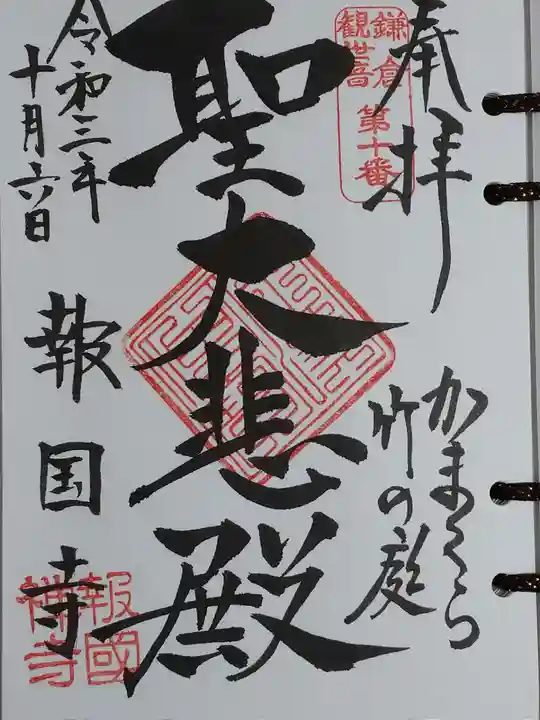 奉拝
鎌倉
観世音 第十番
かまくら
竹の庭
聖大悲殿
令和三年
十月六日
報国寺
報國
禅寺